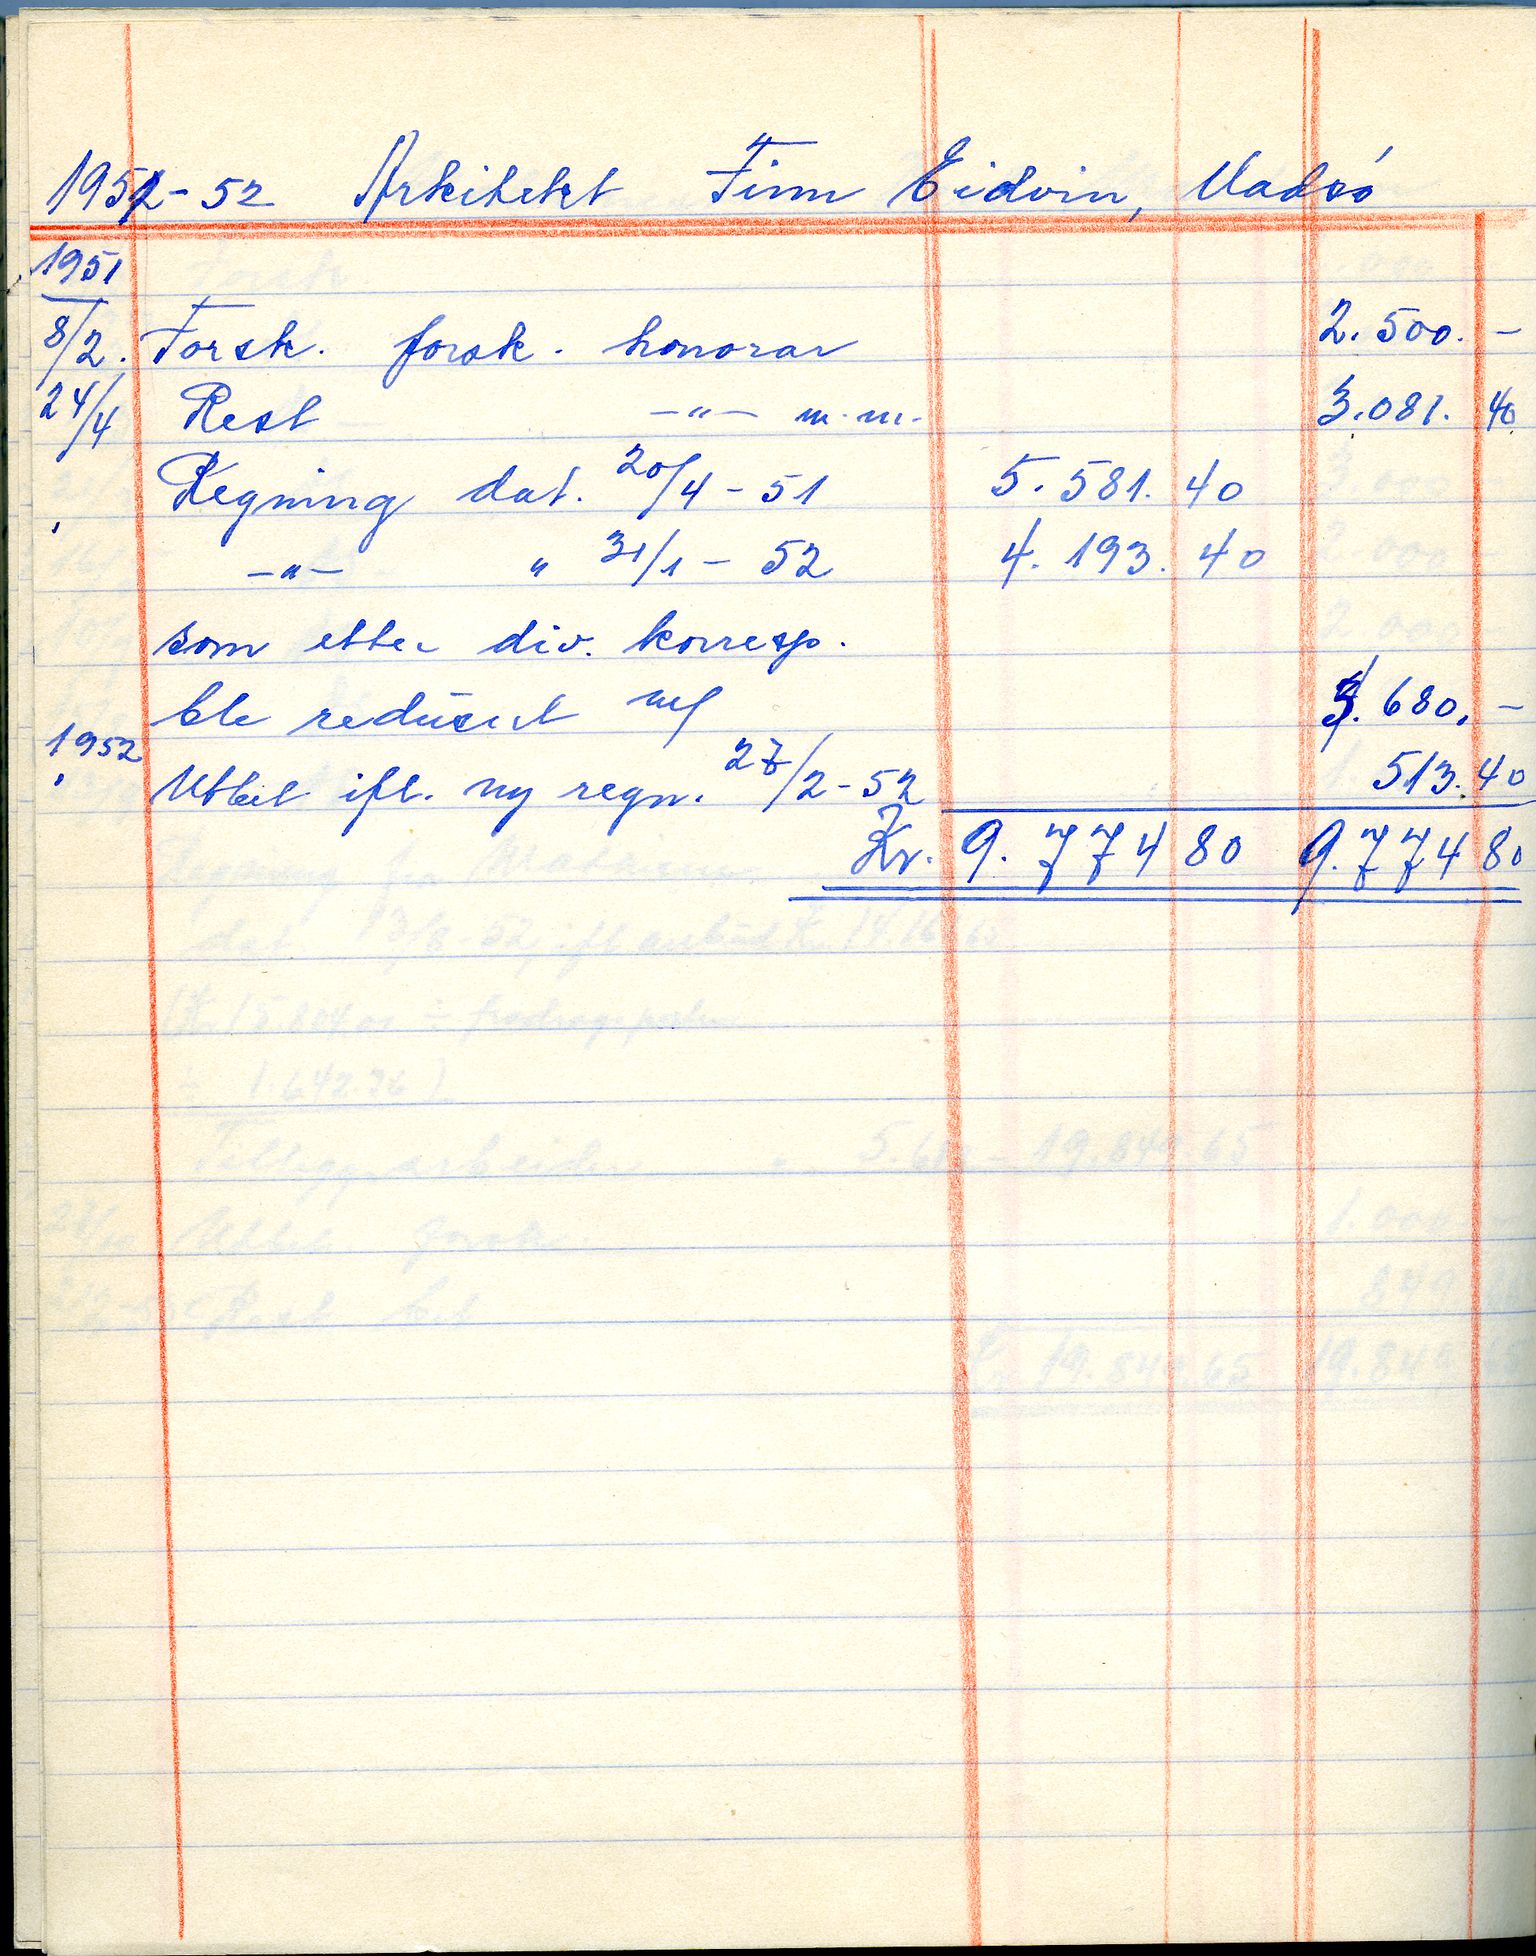 1951-52 Arkitekt Finn Eidvin, Vadsö
1951
8/2. Forsk. forsk. honorar 2.500.-
24/4 Rest -"- m.m. 3.081. 40
Regning dat. 20/4-51 5.581. 40
-"- " 31/1-52 4.193. 40
som etter div. korresp.
ble redusert m/ 3.680.-
1952
Utbet ifl. ny regn. 27/2-52 513.40
Kr. 9.774 80 9.774 80